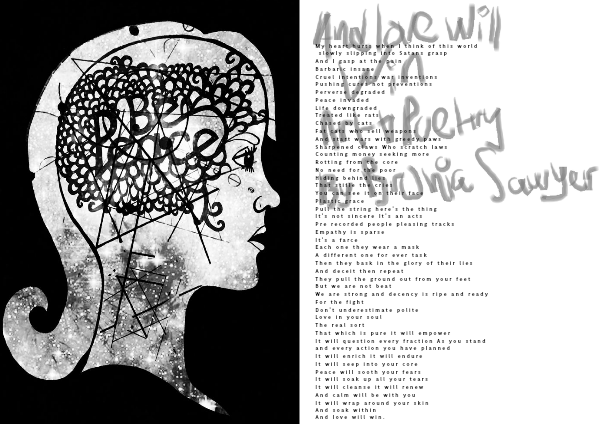 BE
Peace
And love will
Win
Art+Poetry
By Salvia Sawyer
My heart hurts when I think of this world
slowly slipping into Satans grasp
And I gasp at the pain
Barbaric insane
Cruel intentions war inventions
Pushing cures not preventions
Perverse degraded
Peace invaded
Lie downgraded
Treated like rats
Chased by cats
Fat cats who sell weapons
And start wars with greedy paws
Sharpened claws Who scratch laws
Counting money seeking more
Rotting from the core
No need for the poor
Hiding behind lies
That stifle the cries
You can see it on their face
Plastic grace
Pull the string here's the thing
It's not sincere It's an acts
Pre recorded people pleasing tracks
Empathy is sparse
It's a farce
Each one they wear a mask
A different one for ever task
Then they bask in the glory of their lies
And deceit then repeat
They pull the ground out from your feet
But we are not beat
We are strong and decency is ripe and ready
For the fight
Don't underestimate polite
Love in your soul
The real sort
That which is pure it will empower
It will question every fraction As you stand
and every action you have planned
It will enrich it will endure
It will seep into your core
Peace will sooth your fears
It will soak up all your tears
It will cleanse it will renew
And calm will be with you
It will wrap around your skin
And soak within
And love will win.